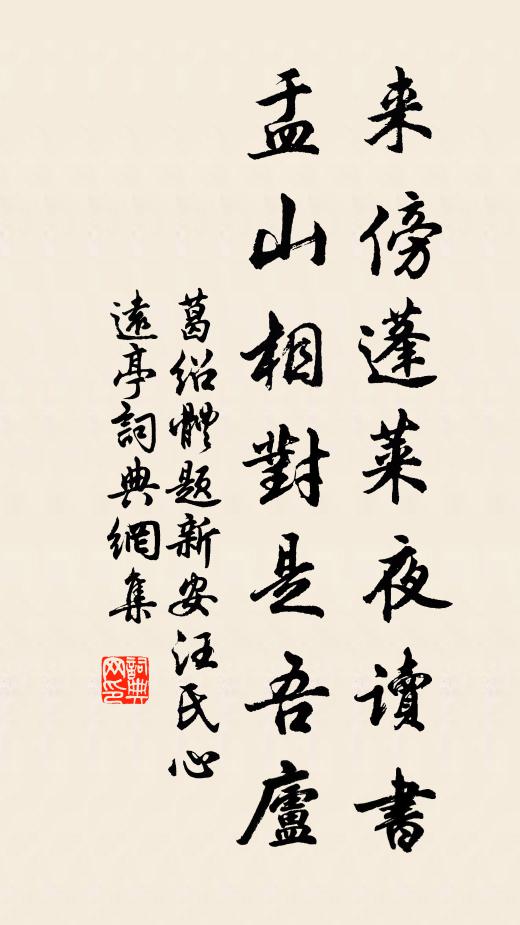 来傍蓬莱夜讀書
盂山相對是吾廬
葛绍體题新安汪民心
遠亭詞典網集
詞典网印